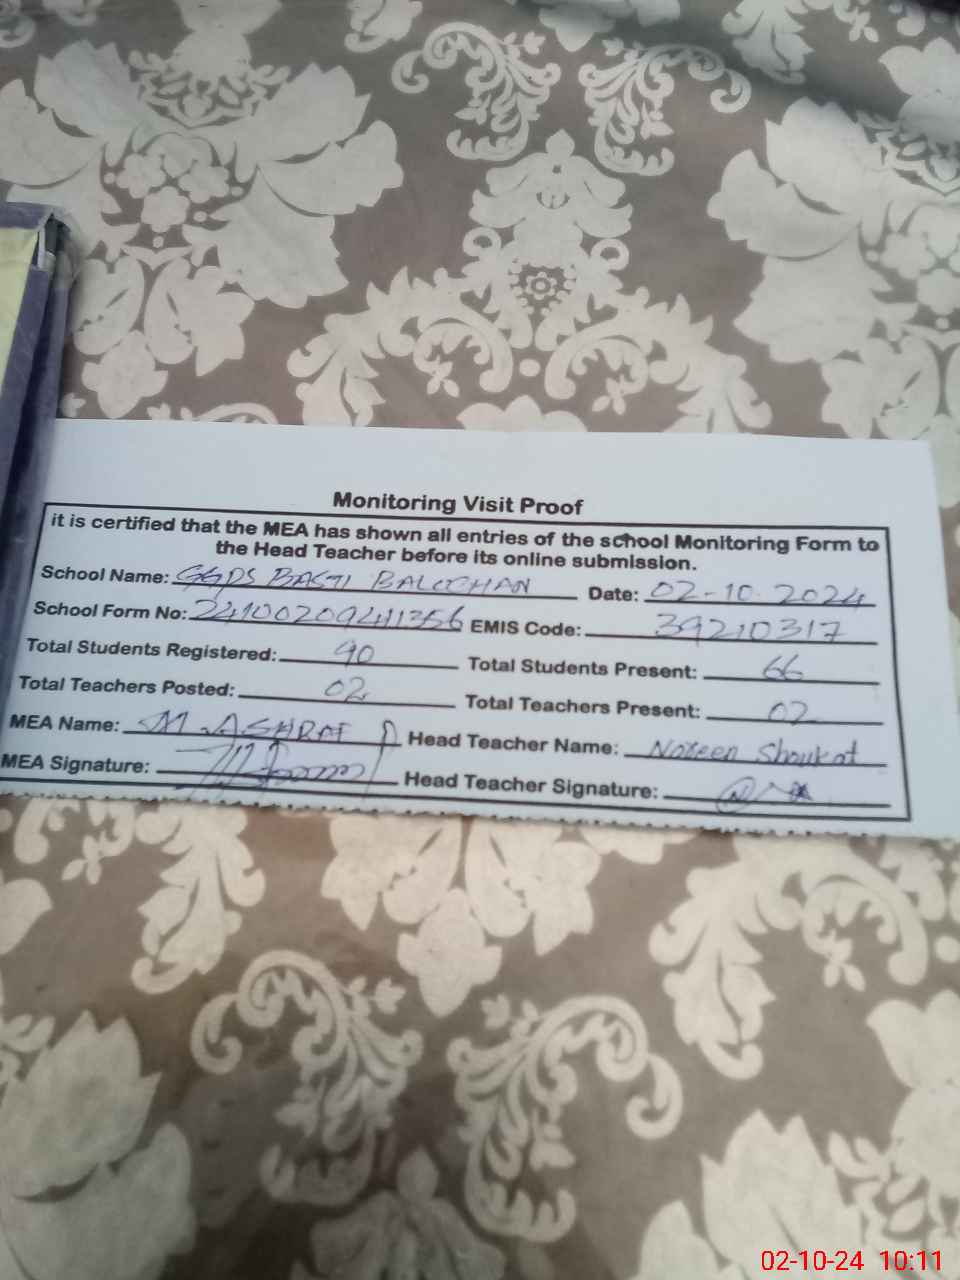 Monitoring Visit Proof
it is certified that the MEA has shown all entries of the school Monitoring Form to
the Head Teacher before its online submission.
School Name: GGPS BASTI BALOCHAN Date: 02-10-2024
School Form No: 2410020941356 EMIS Code: 39210317
Total Students Registered: 90 Total Students Present: 66
Total Teachers Posted: 02 Total Teachers Present: 02
MEA Name: M. ASHRAF Head Teacher Name: Noreen Shoukat
MEA Signature: Head Teacher Signature:
02-10-24 10:11